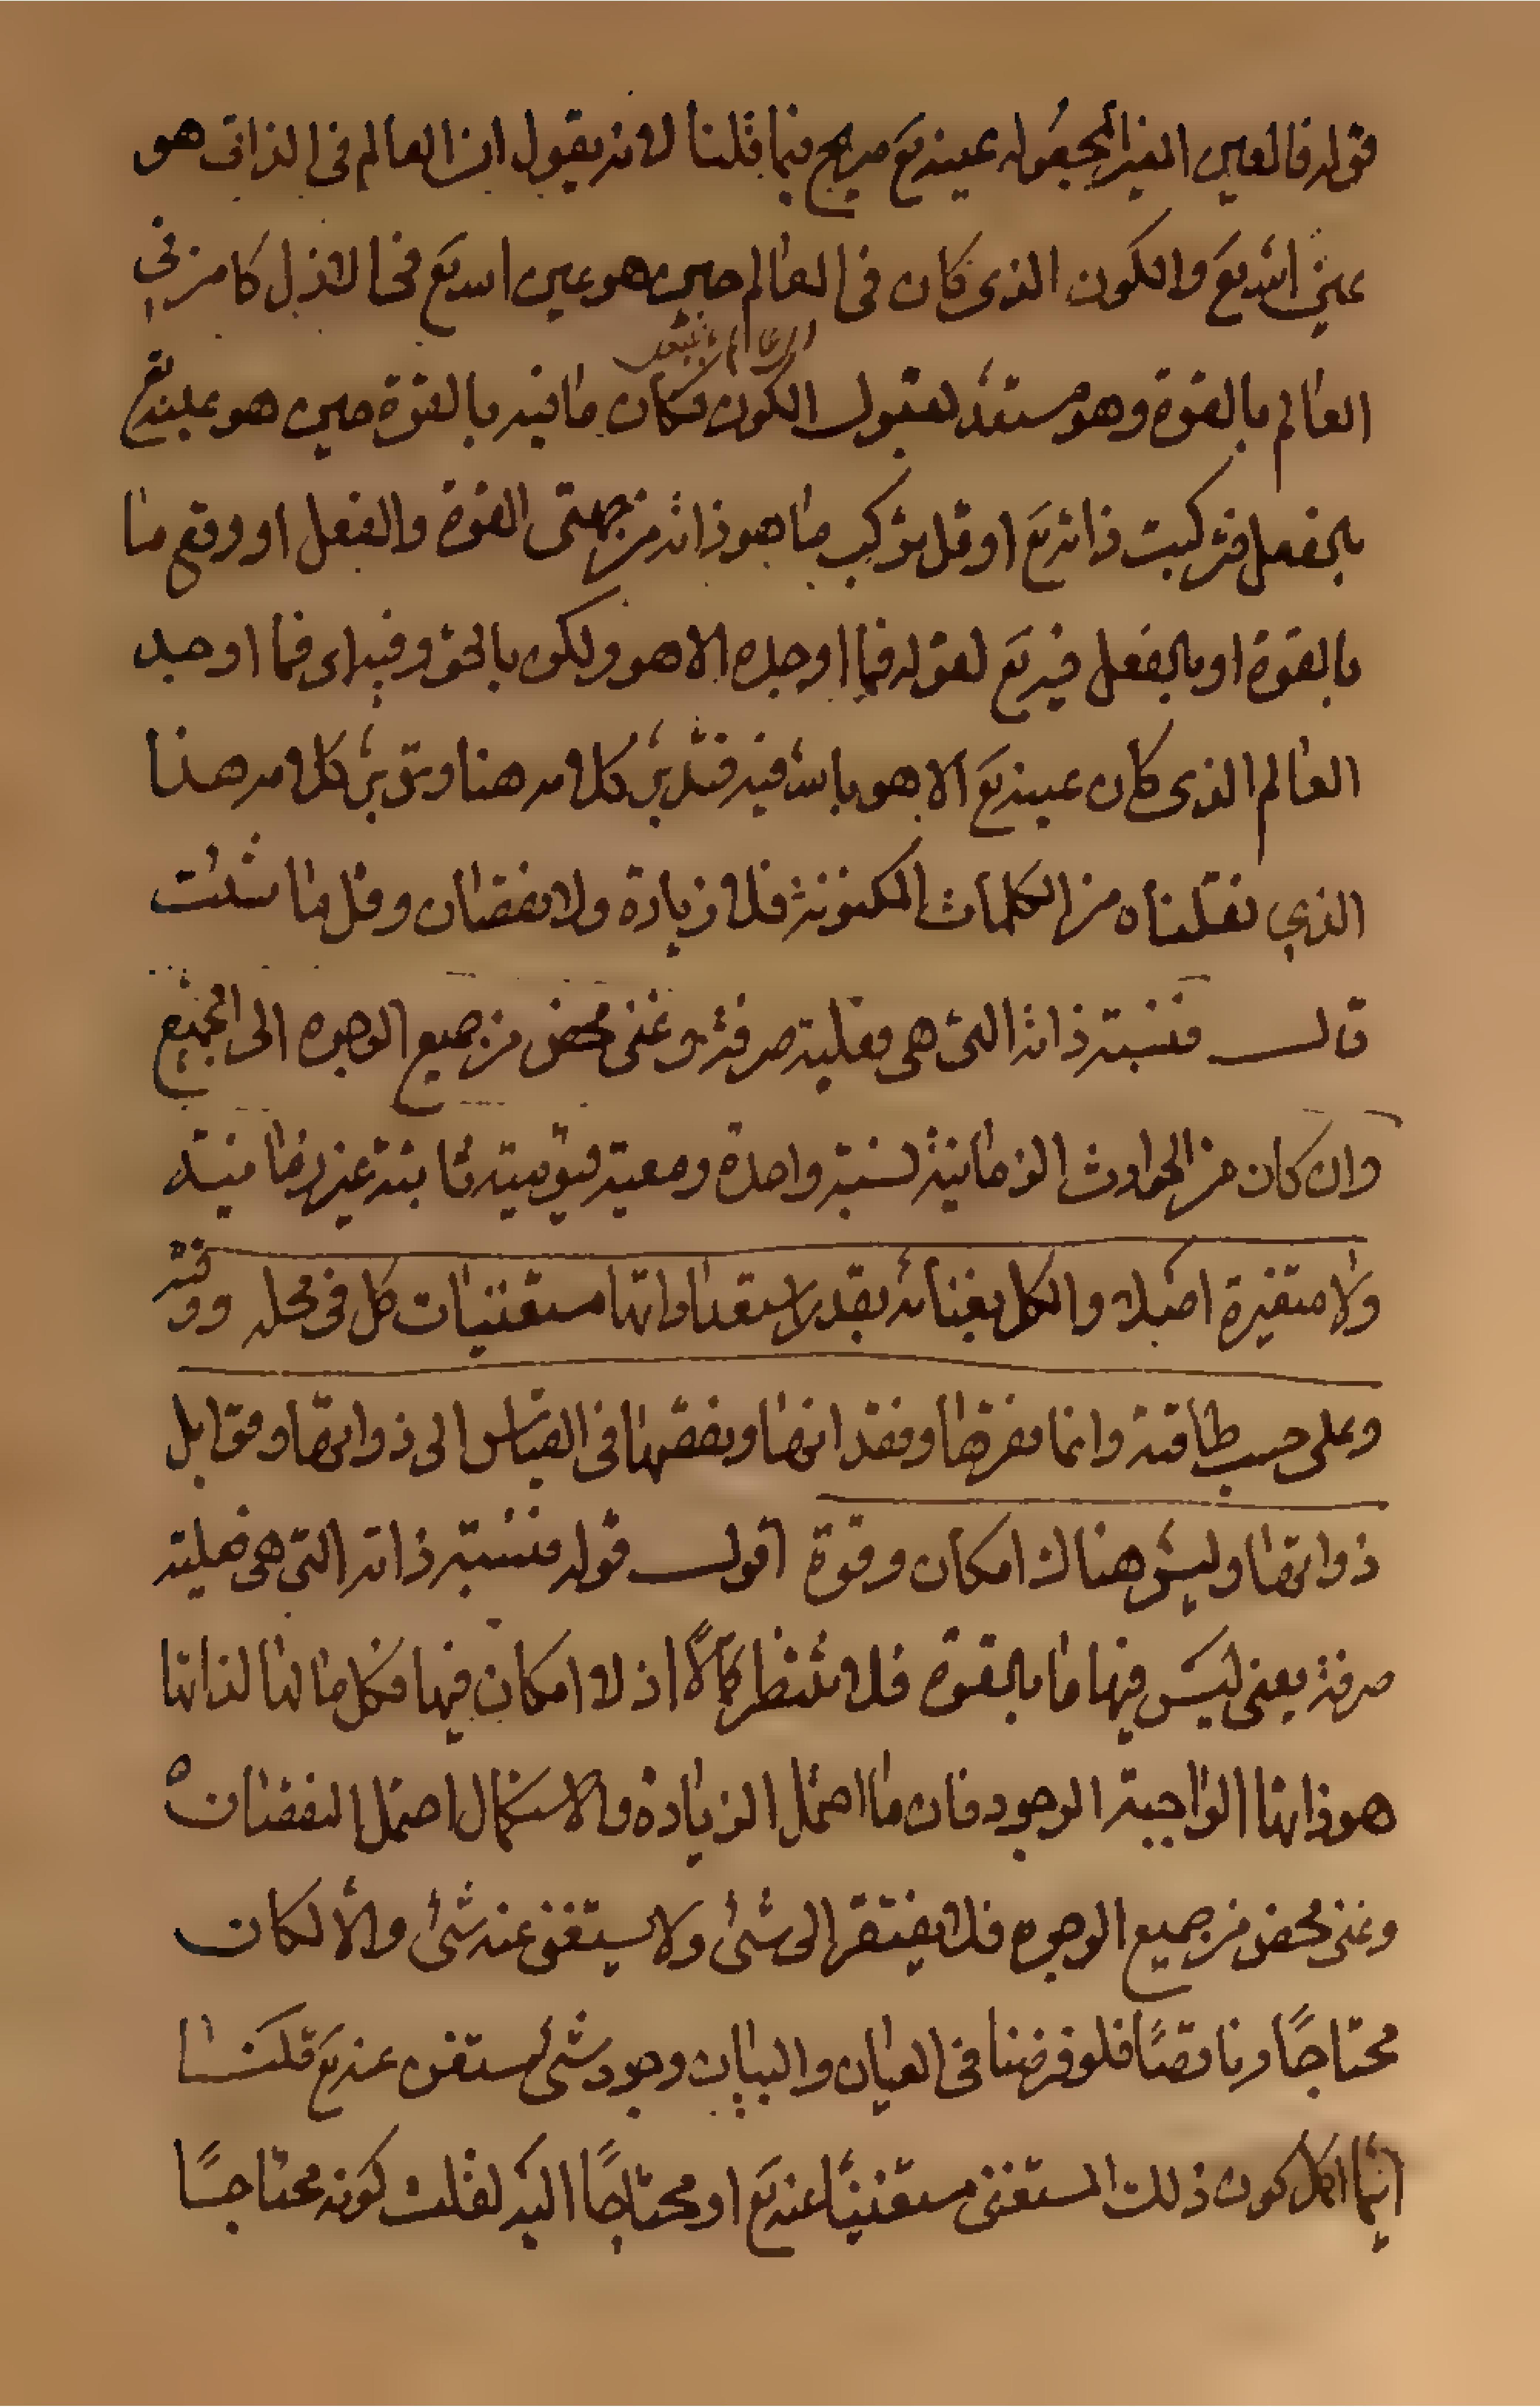 قوله فالعين الغير المجعوله عينه تع صريح فيما قلنا لانه يقول ان العالم فى الذات هو
عين الله تع والكون الذى كان فى العالم حين هو عين الله تع فى الازل كامن فى
العالم بالقوة وهو مستعد لقبول الكون فكان ما فيه بالقوة حين هو عينه تع
بالفعل فتركبت ذاته تع او قل تركب ما هو ذاته من جهتى القوة والفعل او وقع ما
بالقوة او بالفعل فيه تع لقوله فما اوجده الا هو ولكن بالحق وفيه اى فما اوجد
العالم الذى كان عينه تع الا هو بالله فيه فتدبر كلامه هنا وتدبر كلامه هذا
الذي نقلناه من الكلمات المكنونة فلا زيادة ولا نقصان وقل ما شئت
قال فنسبة ذاته التى هى فعلية صرفة وغنى محض من جميع الوجوه الى الجميع
وان كان من الحوادث الزمانية نسبة واحدة ومعية قيومية ثابتة غير زمانية
ولا متغيرة اصلا والكل بغنائه بقدر استعداداتها مستغنيات كل فى محله ووقته
وعلى حسب طاقته وانما فقرها وفقدانها ونقصها فى القياس الى ذواتها وقوابل
ذواتها وليس هناك امكان وقوة اقول قوله فنسبة ذاته التى هى فعلية
صرفة يعنى ليس فيها ما بالقوة فلا تنتظر كمالًا اذ لا امكان فيها فكل ما لها لذاتها
هو ذاتها الواجبة الوجود فان ما احتمل الزيادة والاستكمال احتمل النقصان
وغنى محض من جميع الوجوه فلا يفتقر الى شئ ولا يستغنى عنه شئ والا لكان
محتاجًا وناقصًا فلو فرضنا فى العيان والبيان وجود شئ يستغن عنه تع قلنا
ايما اكمل كون ذلك المستغنى مستغنيًا عنه تع او محتاجًا اليه لقلت كونه محتاجًا